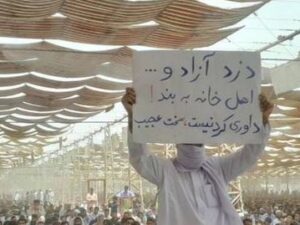 دزد آزاد و ...
اهل خانه به بند!
داوری کردنیست، سخت عجیب